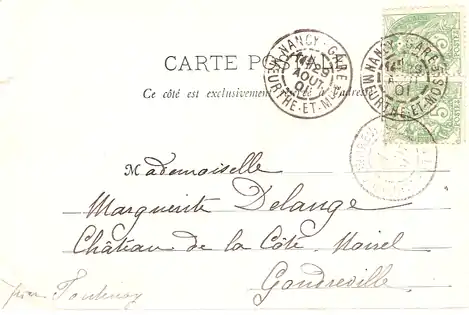 CARTE POSTALE
Ce côté est exclusivement réservé à l'adresse
NANCY-GARE
14 29
AOUT
01
MEURTHE-ET-MOSELLE
NANCY-GARE
29
01
MEURTHE-ET-MOSELLE
Mademoiselle
Marguerite Delange
Château de la Côte
Gondreville